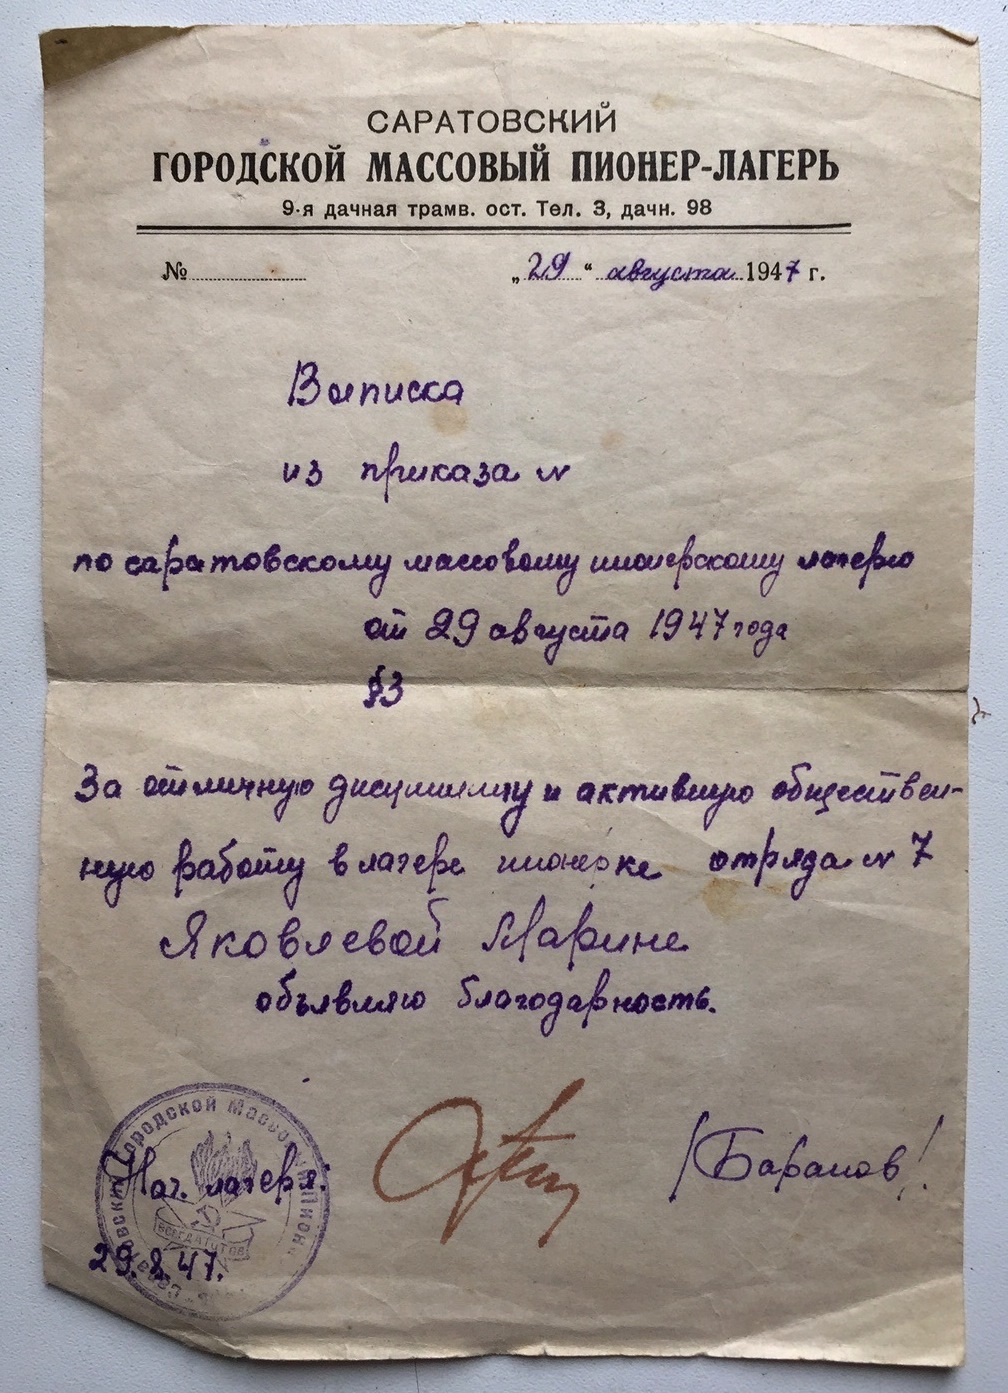 САРАТОВСКИЙ
ГОРОДСКОЙ МАССОВЫЙ ПИОНЕР-ЛАГЕРЬ
9-я дачная трамв. ост. Тел. 3, дачн. 98
№ „29“ августа 1947 г.
Выписка
из приказа №
по саратовскому массовому пионерскому лагерю
от 29 августа 1947 года
§3
За отличную дисциплину и активную обществен-
ную работу в лагере пионерке отряда № 7
Яковлевой Марине
объявляю благодарность.
Городской Массовый Пион
ВСЕГДА ГОТОВ
Нач. лагеря: /Баранов/
29.8.47.